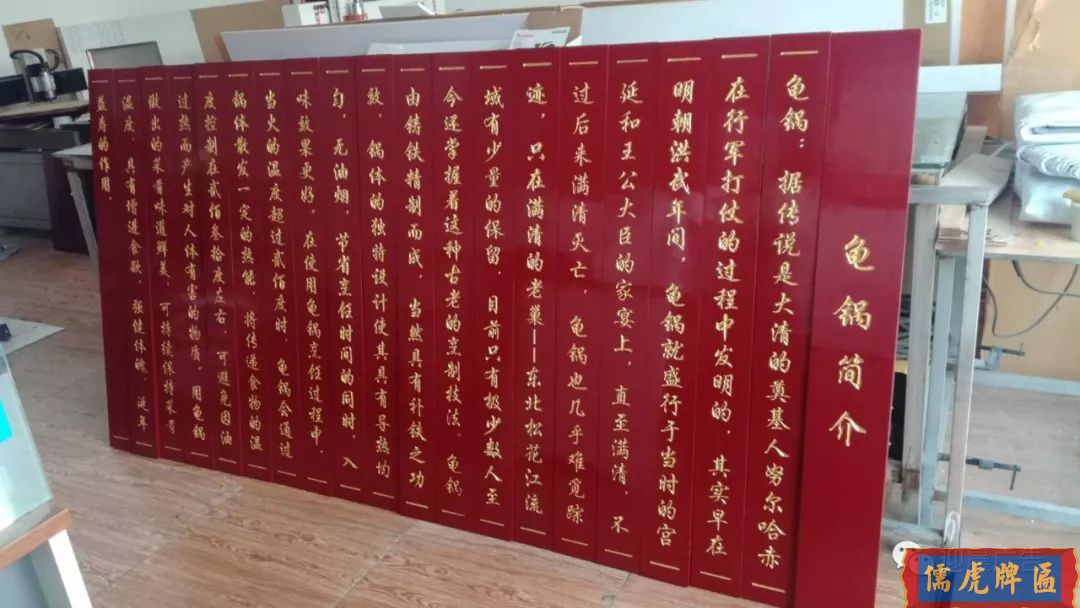 龟锅简介
龟锅：据传说是大清的奠基人努尔哈赤
在行军打仗的过程中发明的，其实早在
明朝洪武年间，龟锅就盛行于当时的宫
延和王公大臣的家宴上，直至满清，不
过后来满清灭亡，龟锅也几乎难觅踪
迹，只在满清的老巢——东北松花江流
域有少量的保留，目前只有极少数人至
今还掌握着这种古老的烹制技法。龟锅
由铸铁精制而成，当然具有补铁之功
效，锅体的独特设计使其具有导热均
匀，无油烟，节省烹饪时间的同时，入
味效果更好。在使用龟锅烹饪过程中，
当火的温度超过贰佰度时，龟锅会通过
锅体散发一定的热能，将传递食物的温
度控制在贰佰叁拾度左右，可避免因油
过热而产生对人体有害的物质。用龟锅
做出的菜肴味道鲜美，可持续保持菜肴
温度，具有增进食欲，强健体魄，延年
益寿的作用。
儒虎牌匾